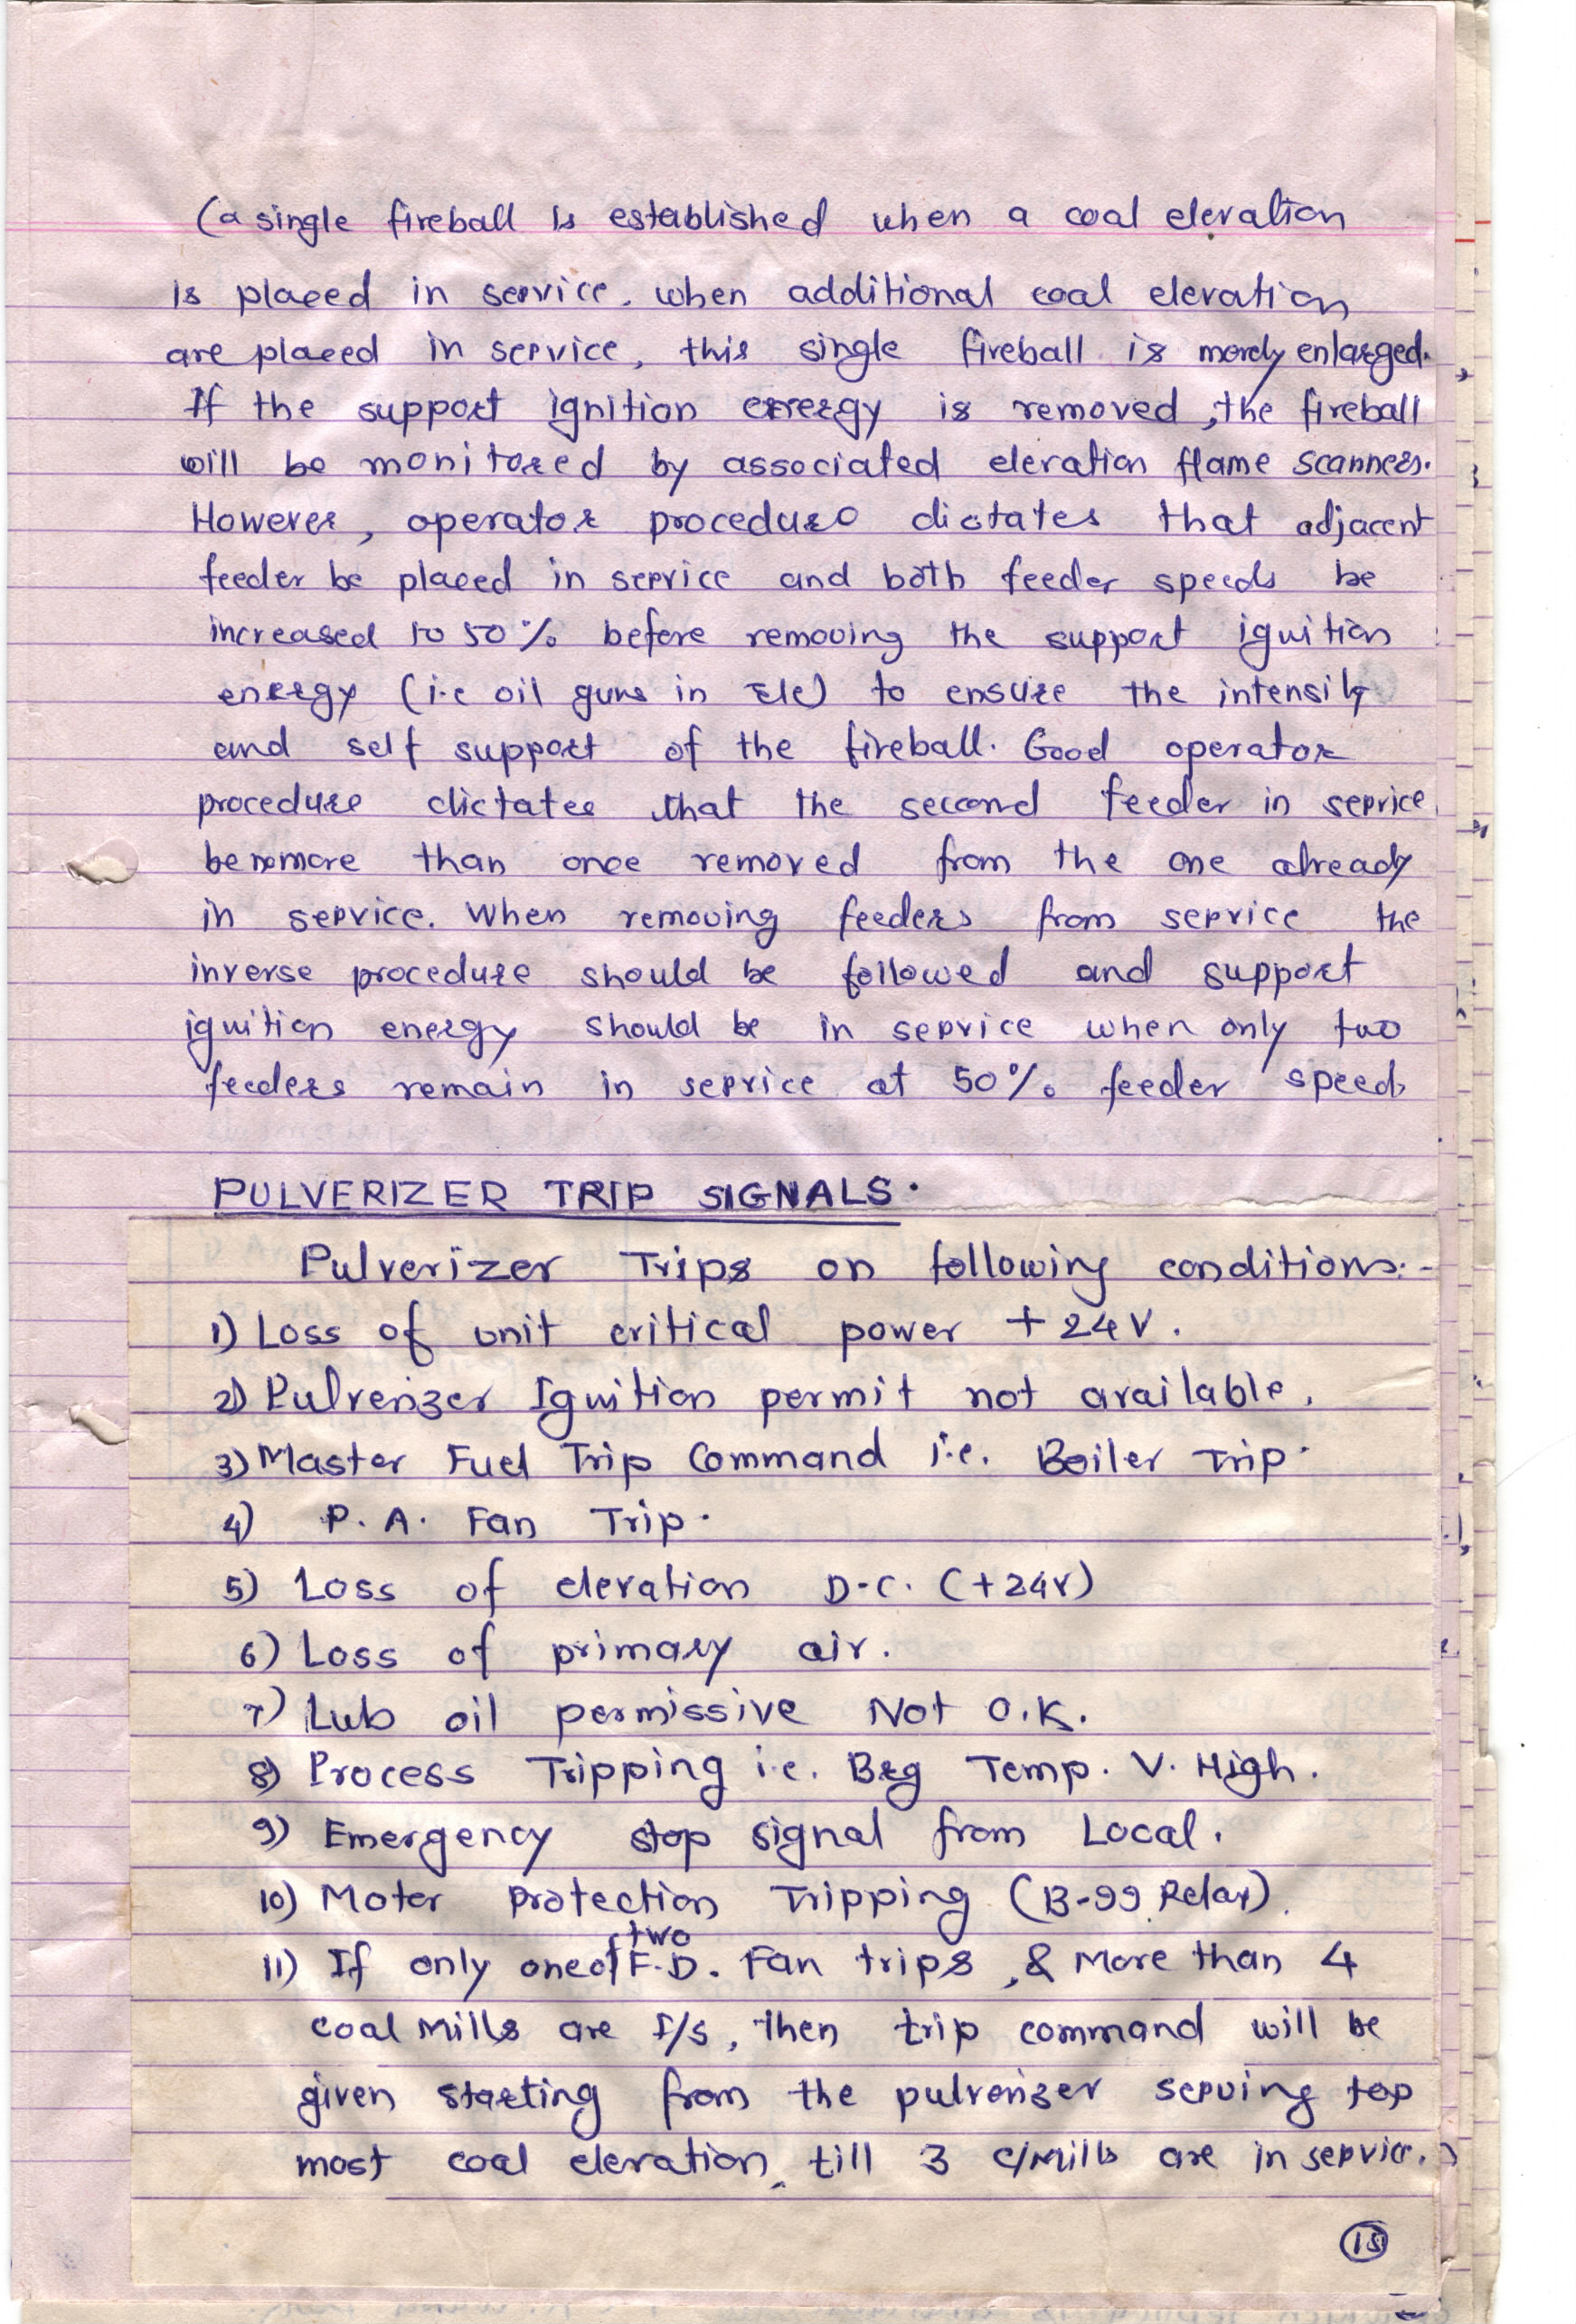 (a single fireball is established when a coal elevation
is placed in service. when additional coal elevation
are placed in service, this single fireball is merely enlarged.
If the support ignition energy is removed, the fireball
will be monitored by associated elevation flame scanners.
However, operator procedure dictates that adjacent
feeder be placed in service and both feeder speeds be
increased to 50% before removing the support ignition
energy (i.e oil guns in Ele) to ensure the intensity
and self support of the fireball. Good operator
procedure dictates that the second feeder in service
be no more than once removed from the one already
in service. When removing feeders from service the
inverse procedure should be followed and support
ignition energy should be in service when only two
feeders remain in service at 50% feeder speed.
PULVERIZER TRIP SIGNALS.
Pulverizer Trips on following conditions:-
1) Loss of unit critical power +24V.
2) Pulverizer Ignition permit not available.
3) Master Fuel Trip Command i.e. Boiler Trip.
4) P.A. Fan Trip.
5) Loss of elevation D.C. (+24V)
6) Loss of primary air.
7) Lub oil permissive Not O.K.
8) Process Tripping i.e. Brg Temp. V. High.
9) Emergency stop signal from Local.
10) Motor protection Tripping (B-99 Relay).
11) If only one of two F.D. Fan trips, & More than 4
coal Mills are I/S, then trip command will be
given starting from the pulverizer serving top
most coal elevation, till 3 c/Mills are in service.
15